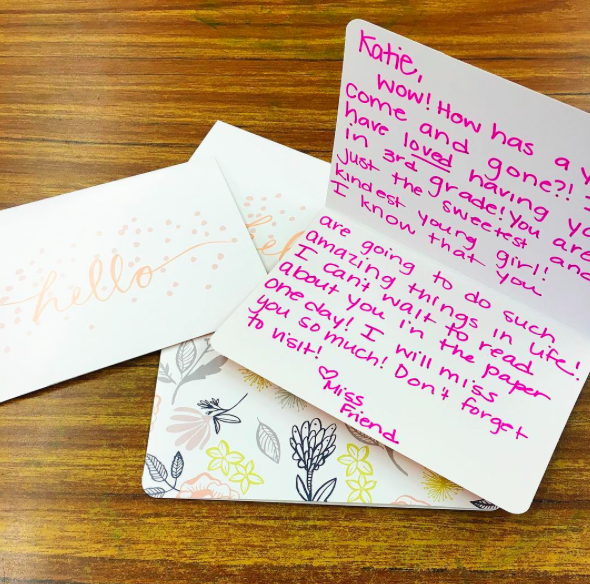 hello
Katie,
Wow! How has a
come and gone?!
have loved having
in 3rd grade! You are
just the sweetest and
kindest young girl!
I know that you
are going to do such
amazing things in life!
I can't wait to read
about you in the paper
one day! I will miss
you so much! Don't forget
to visit!
♡ Miss
Friend